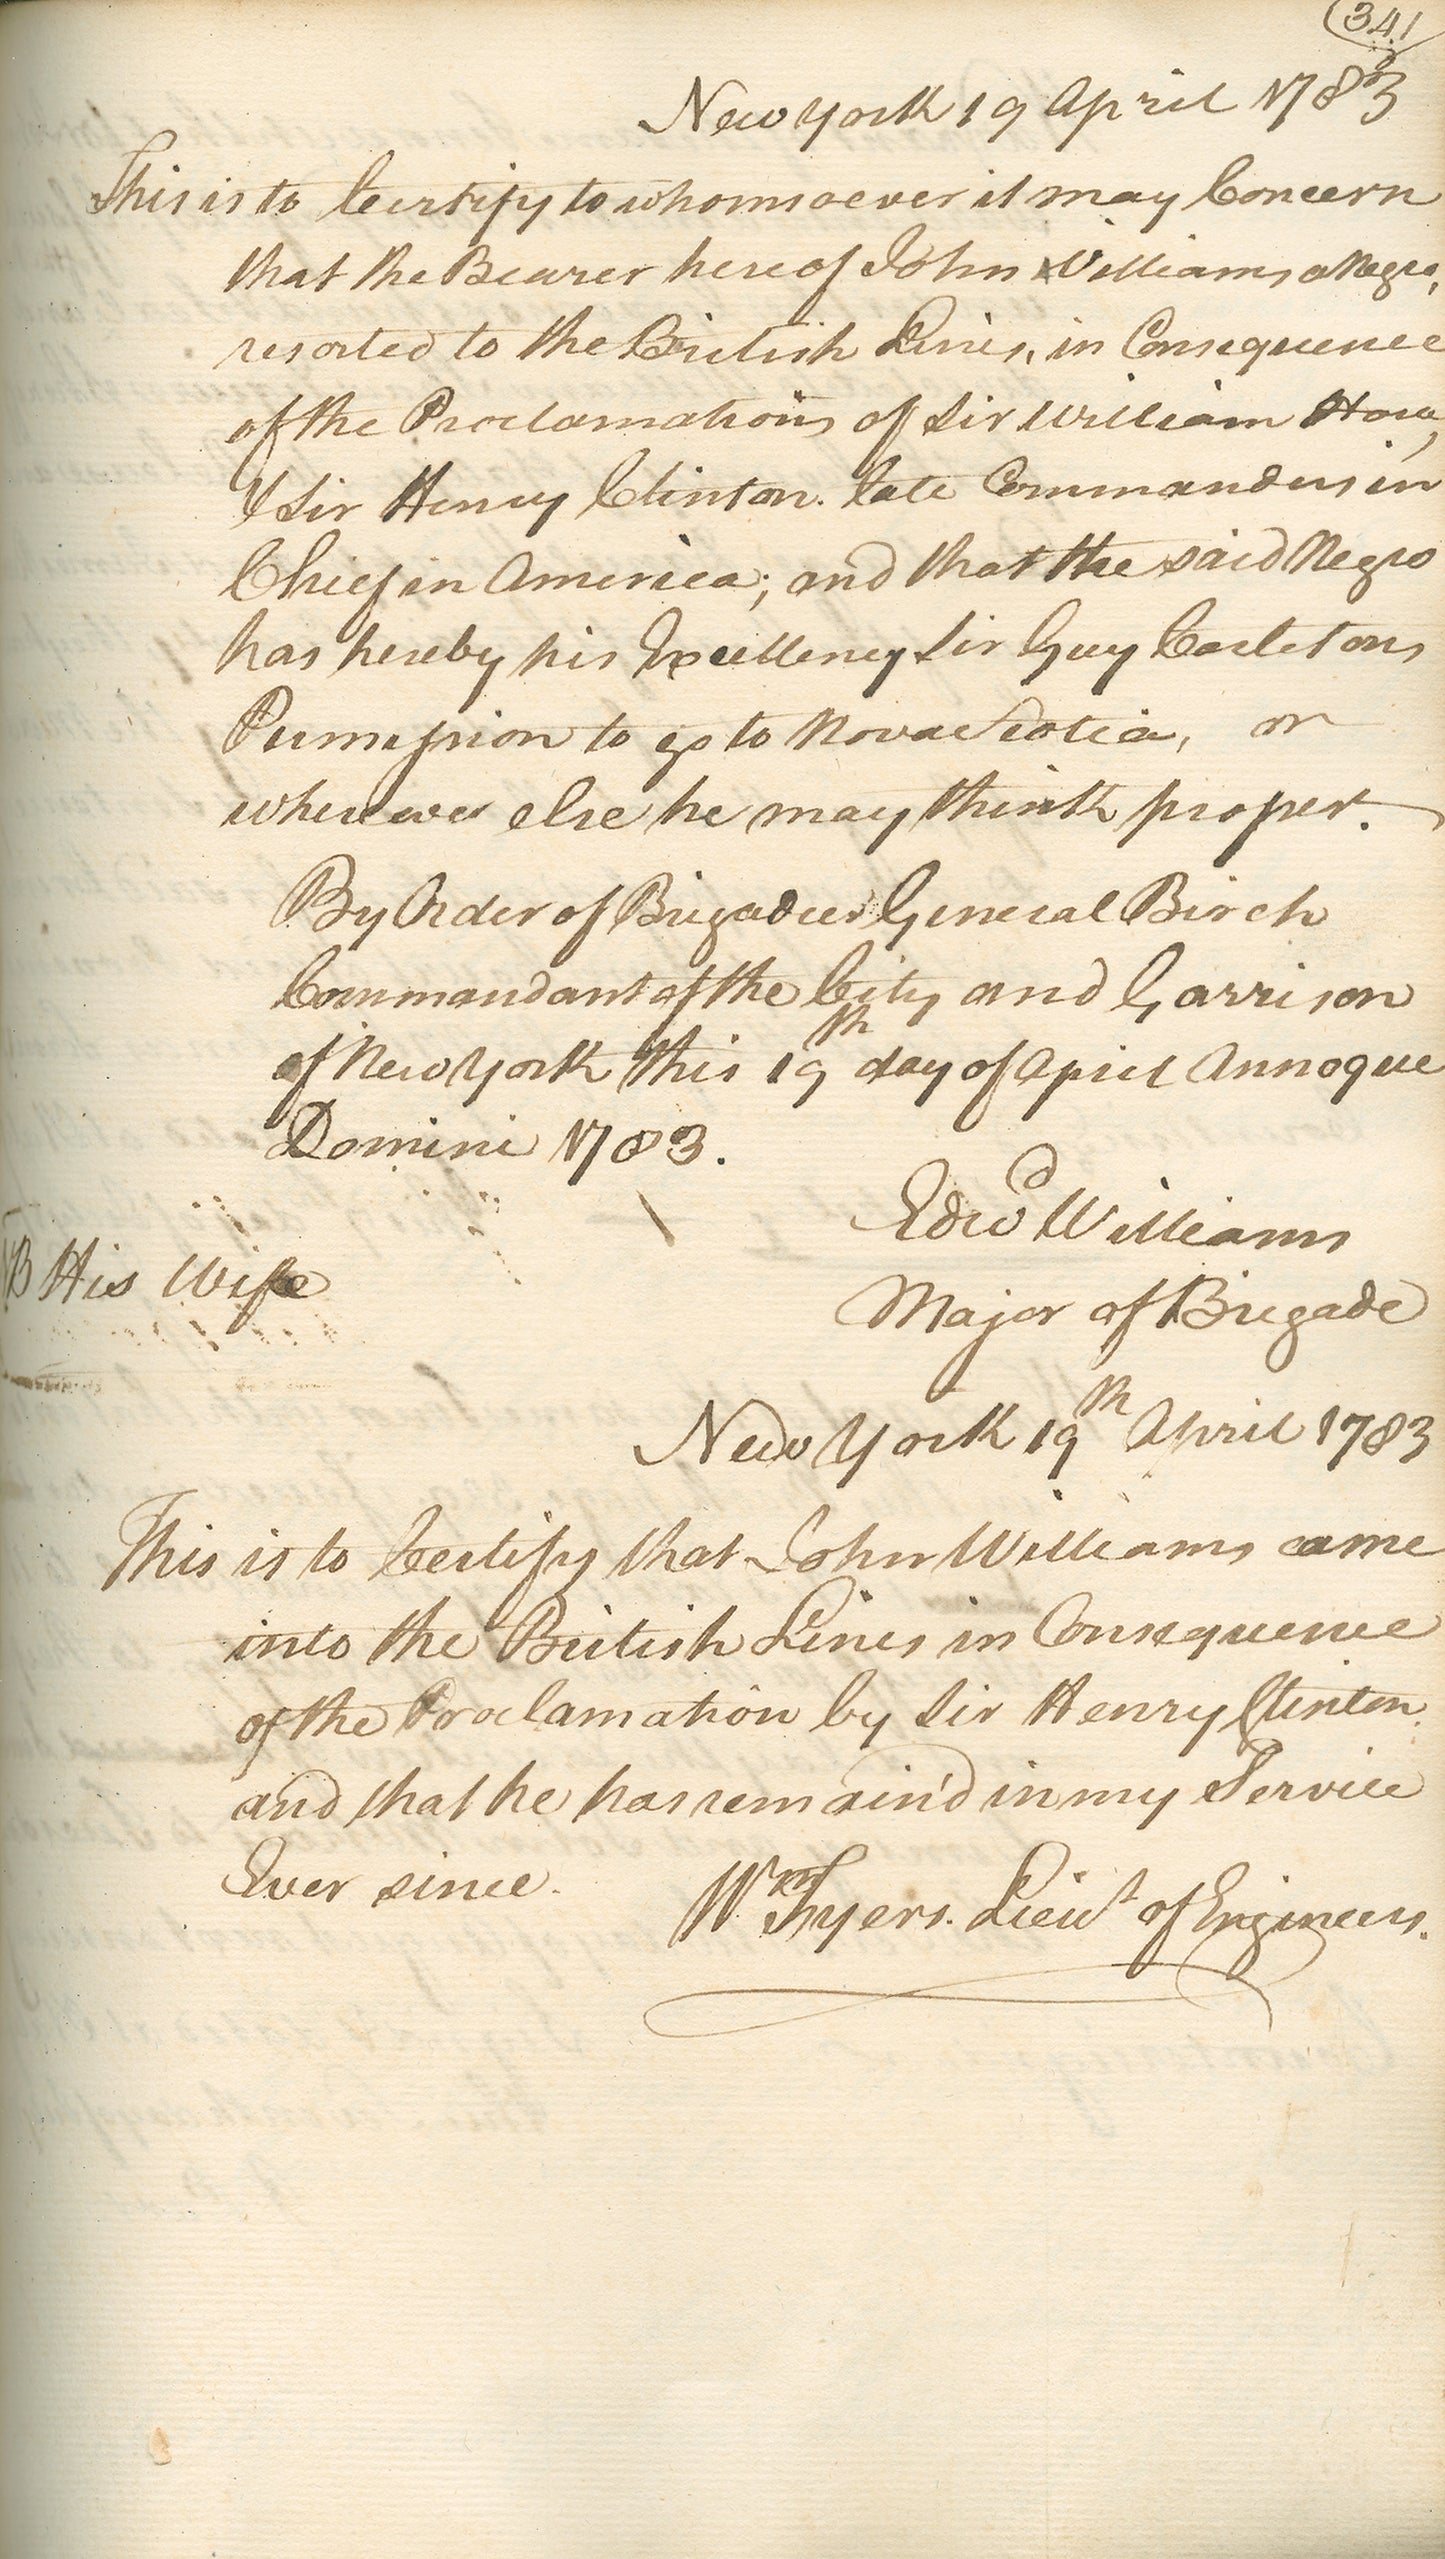 341
New York 19 April 1783
This is to Certify to whomsoever it may Concern
that the Bearer hereof John Williams a Negro,
resorted to the British Lines, in Consequence
of the Proclamations of Sir William Howe,
& Sir Henry Clinton. late Commanders in
Chief in America; and that the said Negro
has hereby his Excellency Sir Guy Carletons
Permission to go to Nova Scotia, or
wherever else he may think proper.
By Order of Brigadier General Birch
Commandant of the City and Garrison
of New York this 19th day of April Annoque
Domini 1783.
Edwd Williams
NB His Wife
Major of Brigade
New York 19th April 1783
This is to Certify that John Williams came
into the British Lines in Consequence
of the Proclamation by Sir Henry Clinton.
and that he has remain'd in my Service
Ever since.
Wm Fyers. Lieut of Engineers.